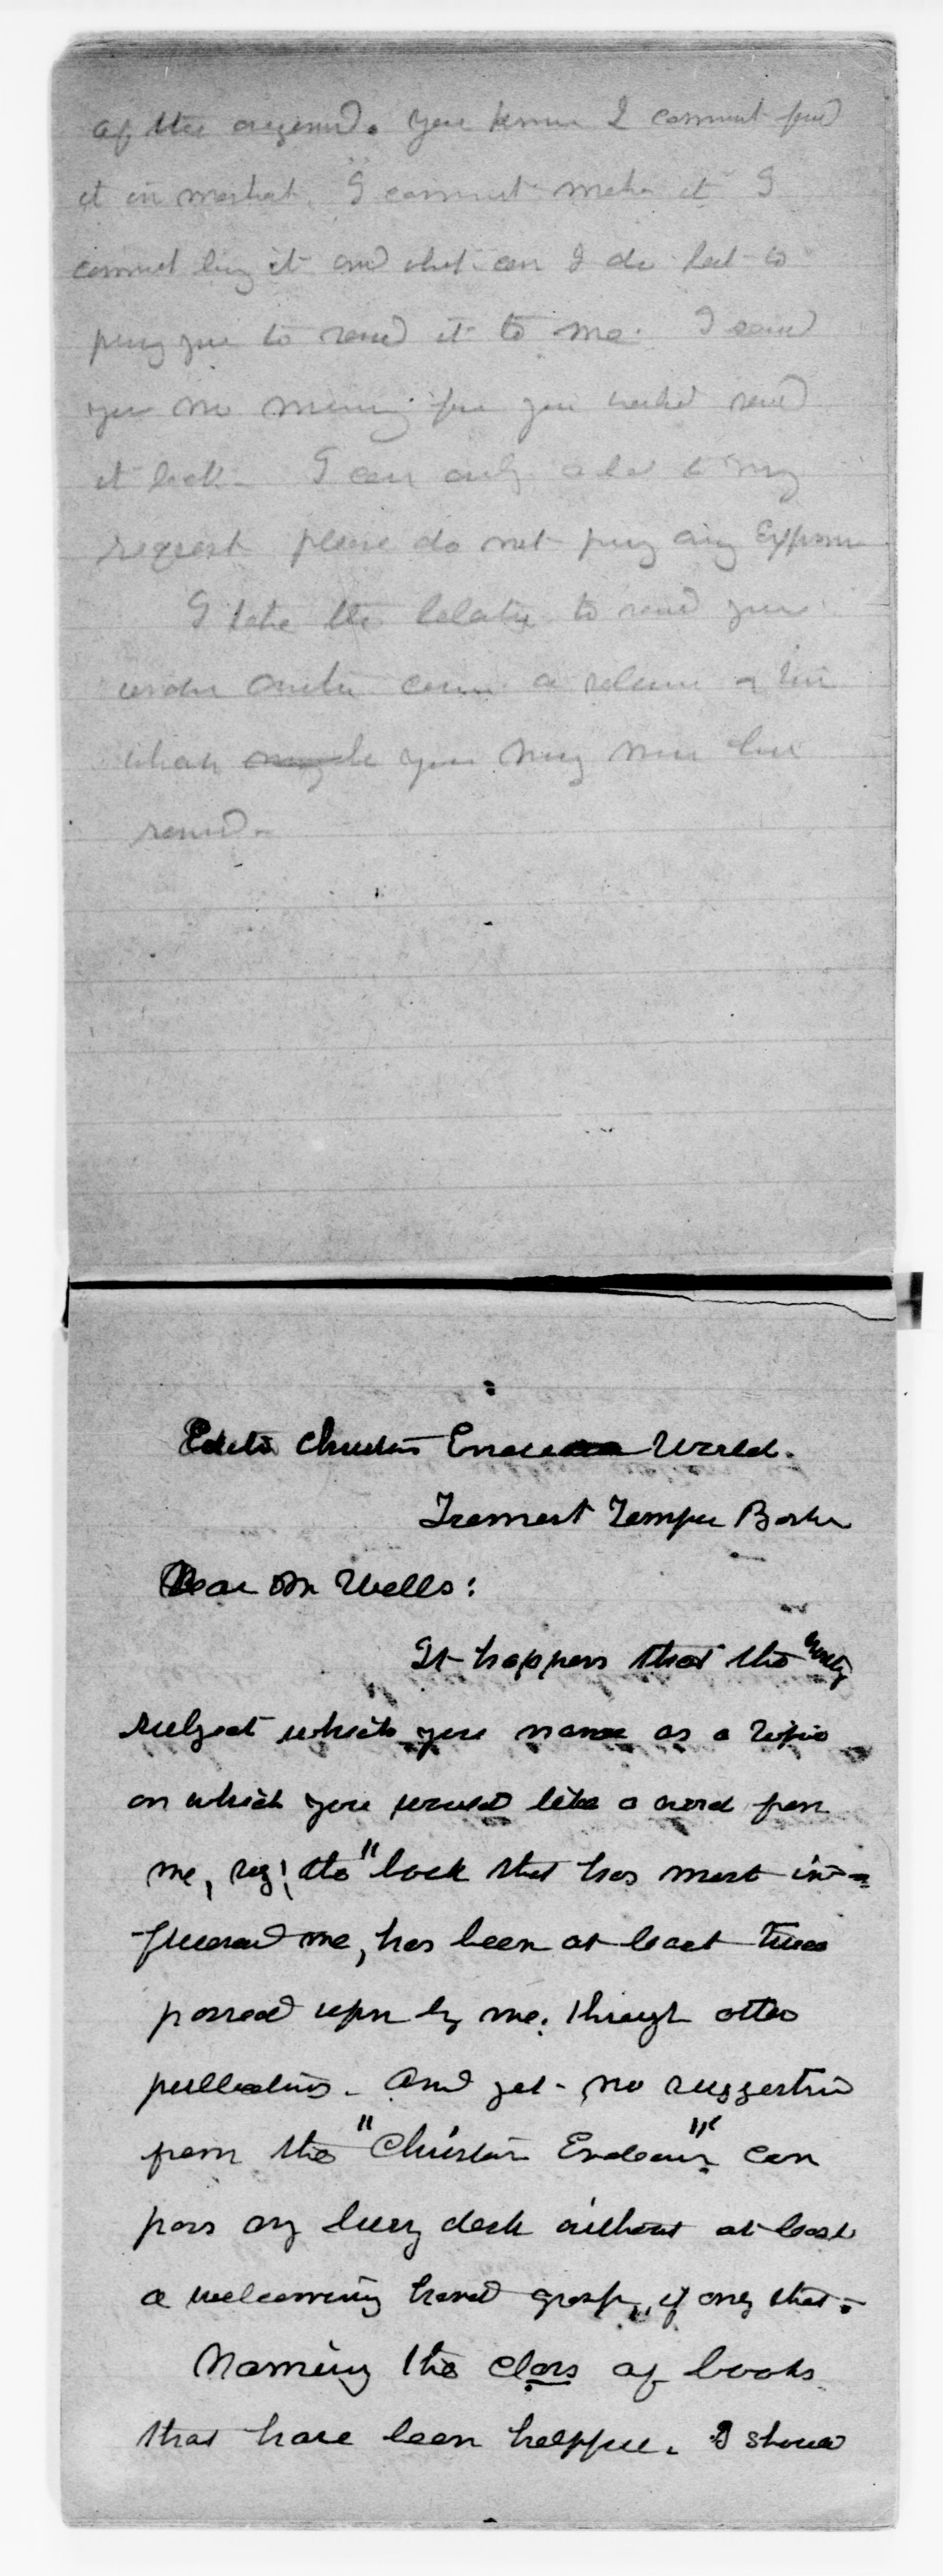 of the original. You know I cannot find
it in market. I cannot make it I
cannot buy it and what can I do but to
pray you to send it to me. I send
you no money for you would send
it back. I can only add to my
request please do not pay any Express
I take the liberty to send you
under another cover a volume
which you may now have
send.
Editor Christian Endeavor World.
Tremont Temple Boston
Dear Mr Wells:
It happens that the
subject which you name as a topic
on which you would like a word from
me, viz; the "book that has most in-
fluenced me, has been at least twice
passed upon by me, through other
publications. And yet no suggestion
from the "Christian Endeavor" can
pass my busy desk without at least
a welcoming hand grasp, if only that.
Naming the class of books
that have been helpful. I should